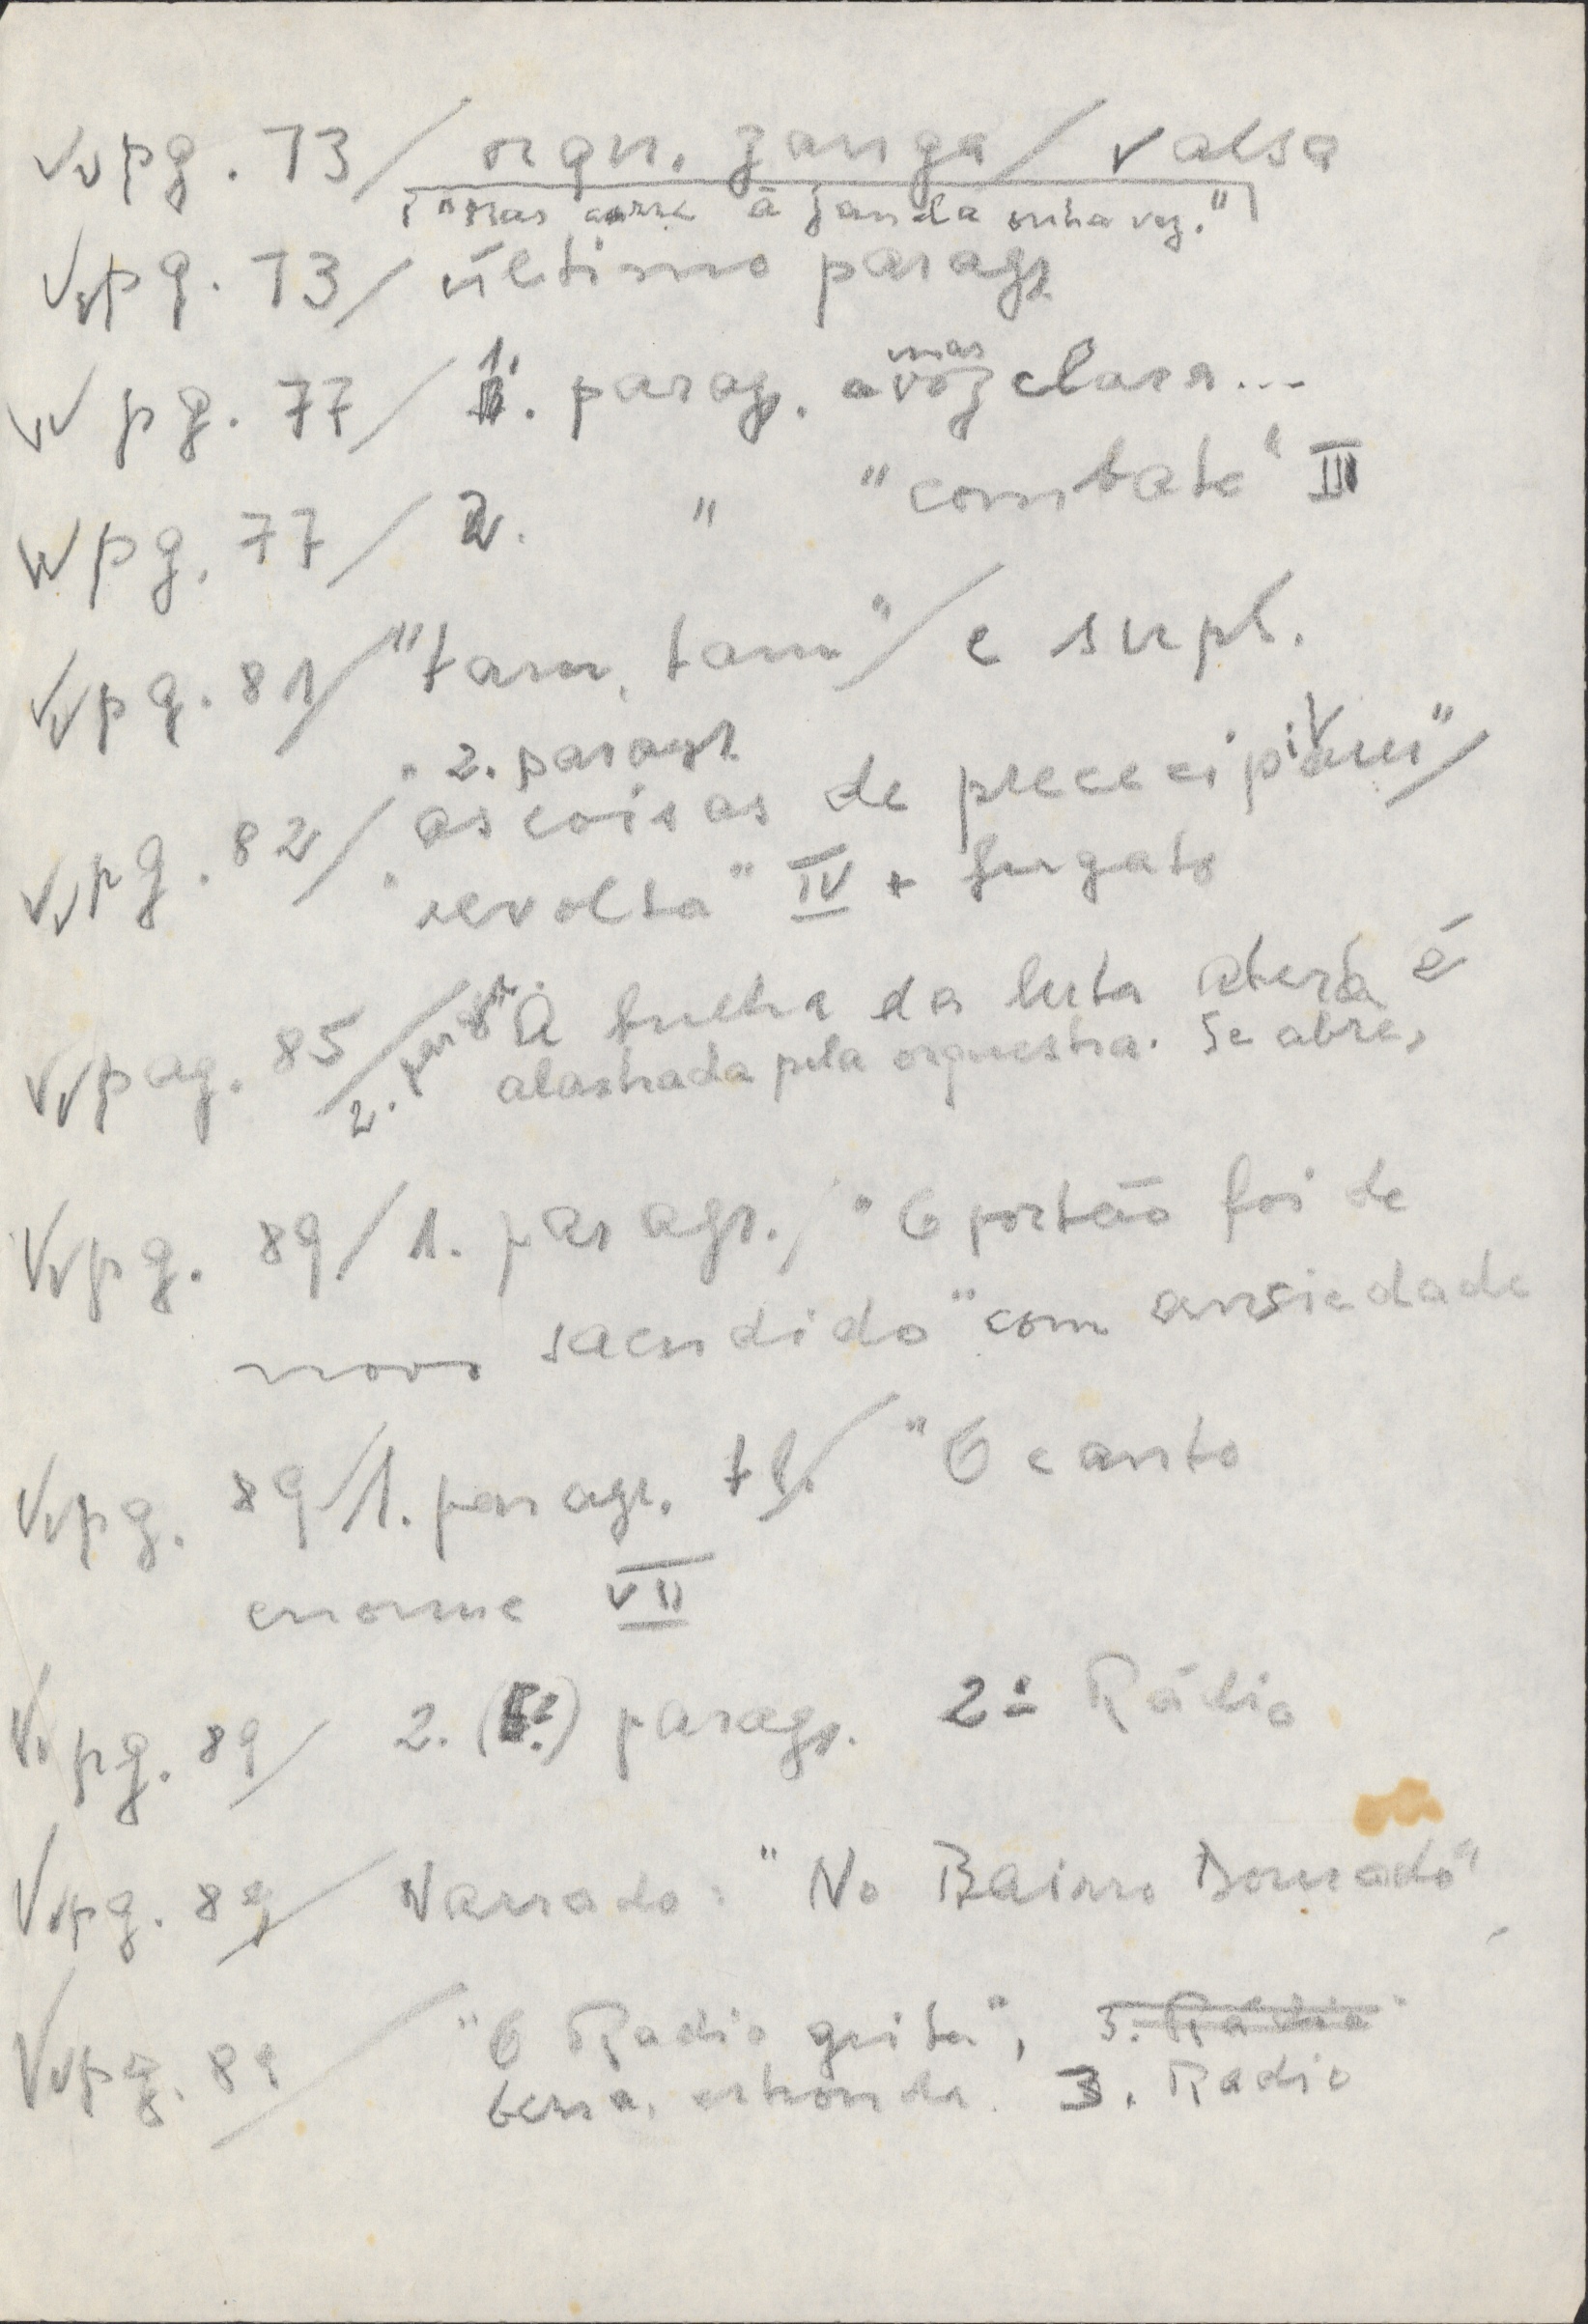 pg. 73 / orqu. zanga / valsa
["Mas corre à janela outra vez."]
pg. 73 / último paragr.
pg. 77 / 1. paragr. mas a voz clara...
pg. 77 / 2. " "combate" III
pg. 81 / "tam, tam" / e supl.
2. paragr.
pg. 82 / "as coisas de precccipitam" /
"revolta" IV + fugato
pag. 85 / 2. paragr. A bulha da luta aterá é
alastrada pela orquestra. Se abre,
pg. 89 / 1. paragr. / "O portão foi de
novo sacudido" com ansiedade
pg. 89 / 1. paragr. / "O canto
enorme VII
pg. 89 / 2. ( ?) paragr. 2º Rádio
pg. 89 / Narrado: "No Bairro Dourado"
pg. 89 / "O Radio grita", 3. Rádio
berra, estronda. 3. Radio